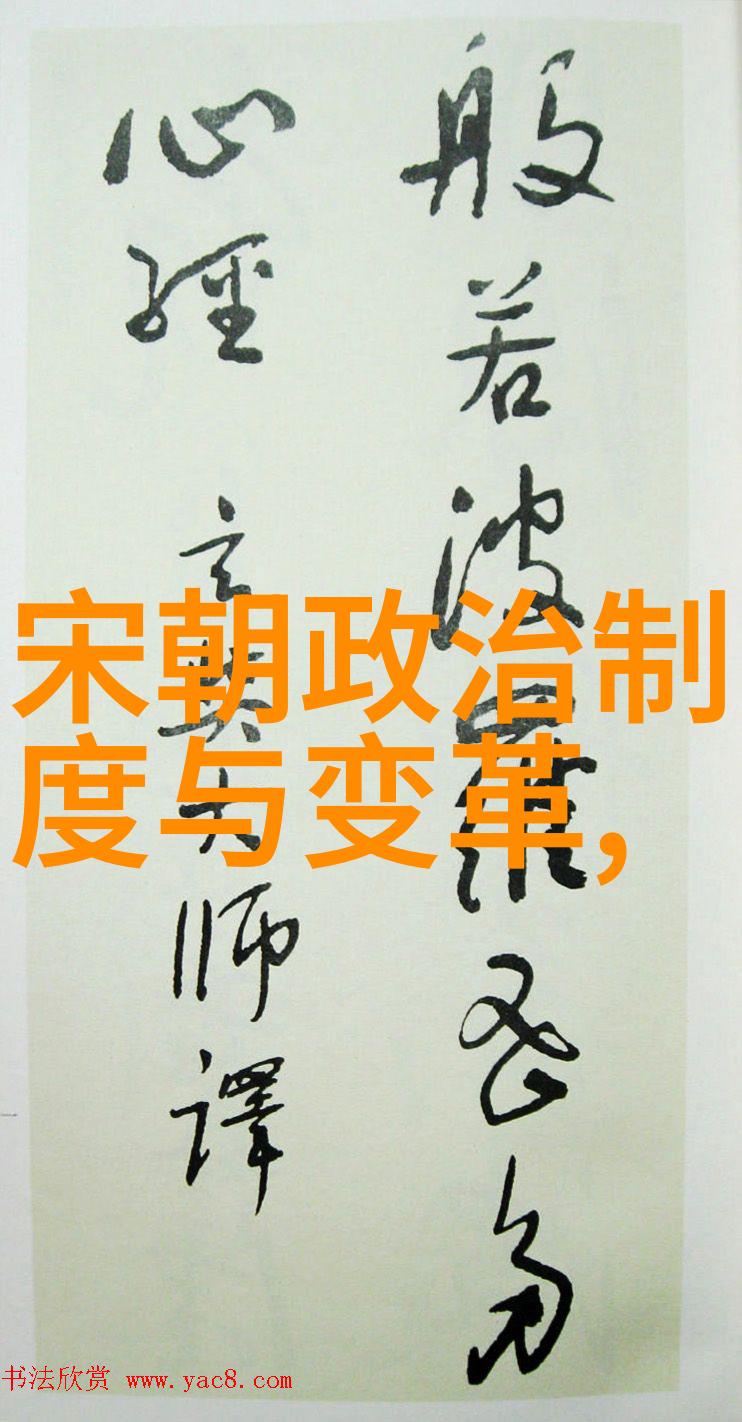 般若波羅蜜多
心經 玄奘大師譯
宋朝政治制
度与变革,
书法欣赏 www.yac8.com